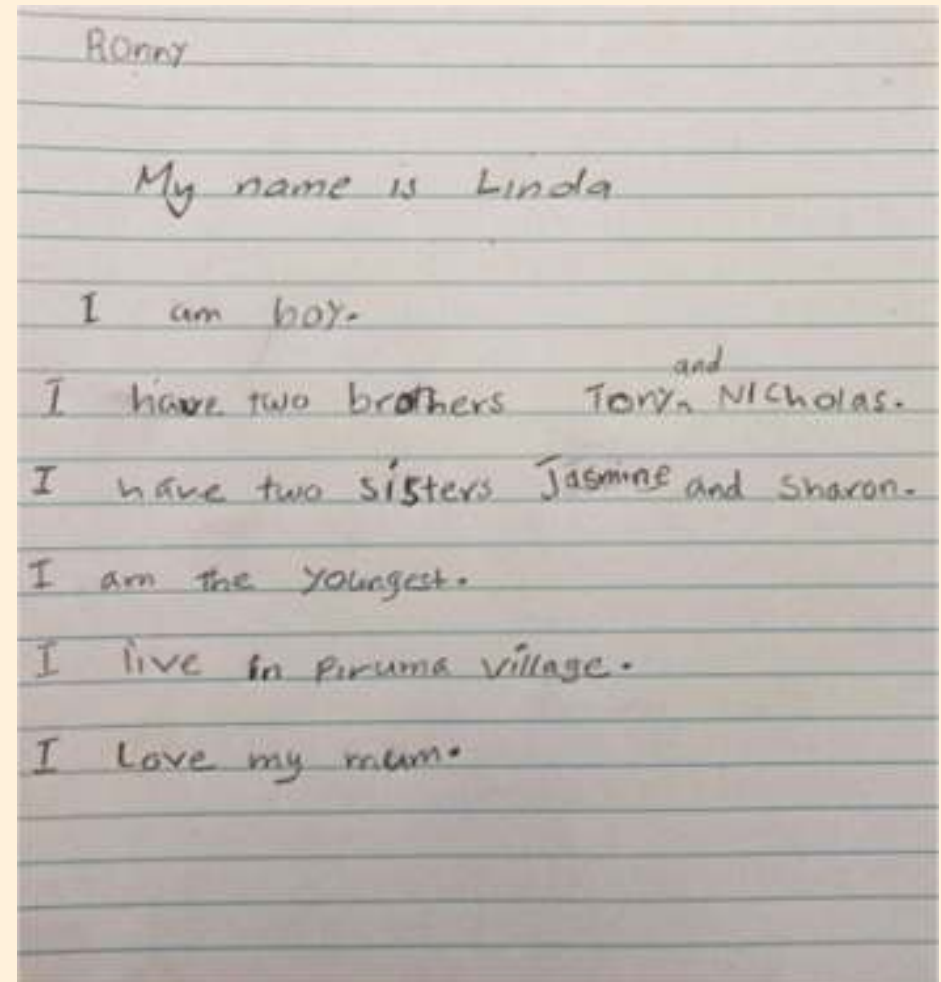 Ronny
My name is Linda
I am boy.
I have two brothers Tony and Nicholas.
I have two sisters Jasmine and Sharon.
I am the youngest.
I live in Piruma village.
I Love my mum.